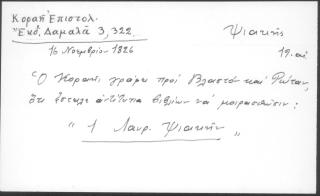 Κοραῆ Ἐπιστολ.
Ἔκδ. Δαμαλᾶ 3, 322.
Ψιακῆς
16 Νοεμβρίου 1826
19. αἰ
Ὁ Κοραῆς γράφει πρὸς Βλαστὸν καὶ Ρώταν,
ὅτι ἔστειλε ἀντίτυπα βιβλίων νὰ μοιρασθῶσιν :
" 1 Λαυρ. Ψιακὴν "